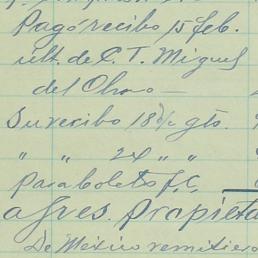 Pagó recibo 15 feb.
ult. de C. T. Miguel
del Olmo —
Su recibo 18 d/o gts.
" " 24 " "
para boleto f.C.
a fres. Propieta
De México remitiero